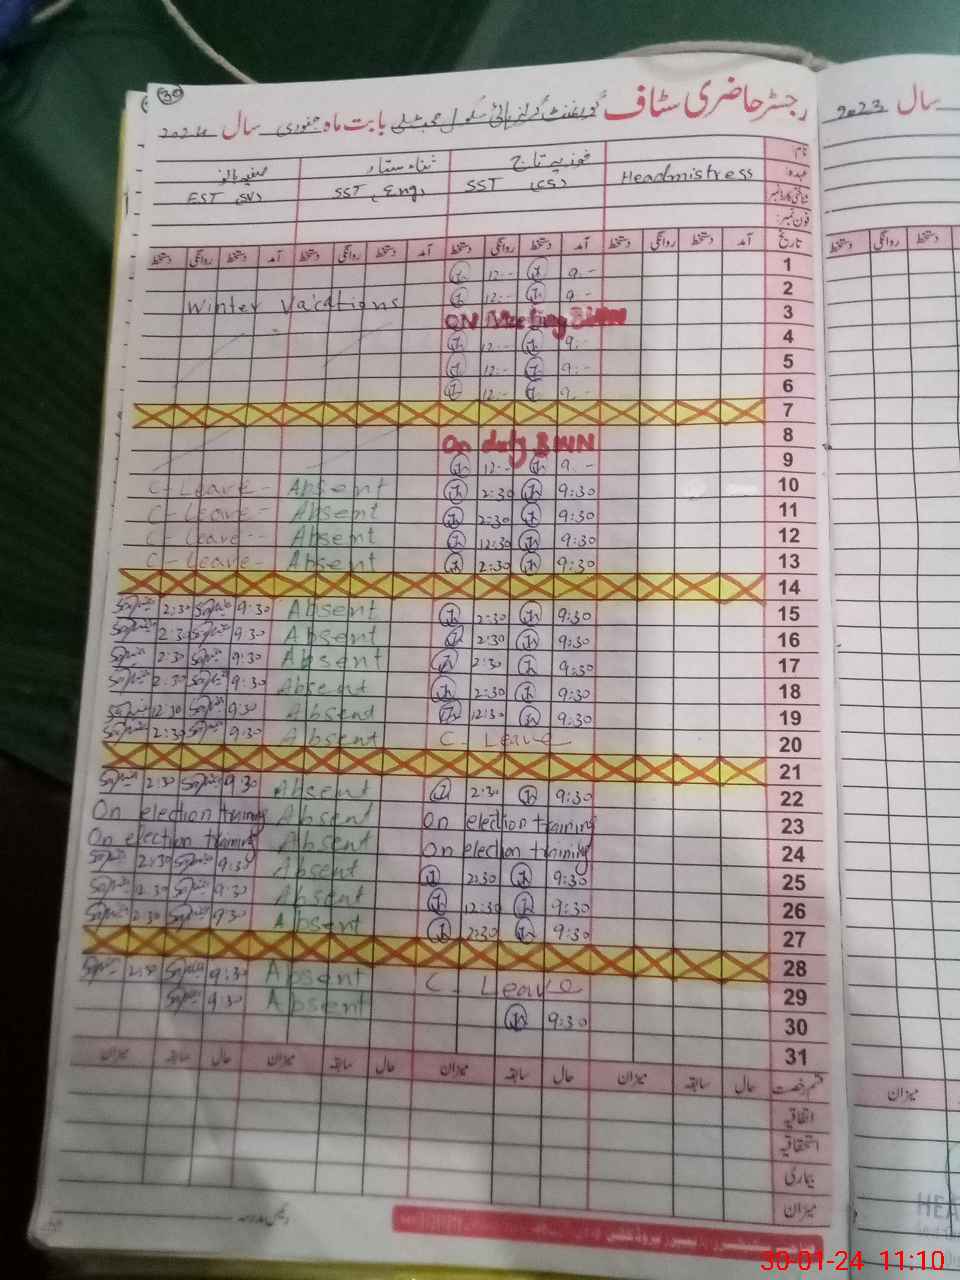 30
رجسٹر حاضری سٹاف گورنمنٹ گرلز ہائی سکول بابت ماہ جنوری سال 2024
سال 2023
نام:
فوزیہ تاج ثناء ستار صفیہ بانو
عہدہ: Headmistress SST (CS) SST (Eng) EST (SV)
شناختی کارڈ نمبر
فون نمبر:
تاریخ آمد دستخط روانگی دستخط آمد دستخط روانگی دستخط آمد دستخط روانگی دستخط آمد دستخط روانگی دستخط
دستخط روانگی دستخط
1 9.- 12.-
2 9.- 12.- Winter Vacations
3 ON Meeting BWN
4 9.- 12.-
5 9.- 12.-
6 9.- 12.-
7
8 On duty BWN
9 9.- 12.-
10 9:30 2:30 Absent C-Leave-
11 9:30 2:30 Absent C-Leave-
12 9:30 12:30 Absent C-Leave-
13 9:30 2:30 Absent C-Leave-
14
15 9:30 2:30 Absent 9:30 2:30
16 9:30 2:30 Absent 9:30 2:30
17 9:30 2:30 Absent 9:30 2:30
18 9:30 2:30 Absent 9:30 2:30
19 9:30 12:30 Absent 9:30 12:30
20 C- Leave Absent 9:30 2:30
21
22 9:30 2:30 Absent 9:30 2:30
23 On election training Absent On election training
24 On election training Absent On election training
25 9:30 2:30 Absent 9:30 2:30
26 9:30 12:30 Absent 9:30 12:30
27 9:30 2:30 Absent 9:30 2:30
28
29 C- Leave Absent 9:30 2:30
30 9:30 Absent 9:30
31
قسم رخصت حال سابقہ میزان حال سابقہ میزان حال سابقہ میزان حال سابقہ میزان
میزان
اتفاقیہ
استحقاقیہ
بیماری
میزان
رئیس مدرسہ
HEA
30-01-24 11:10